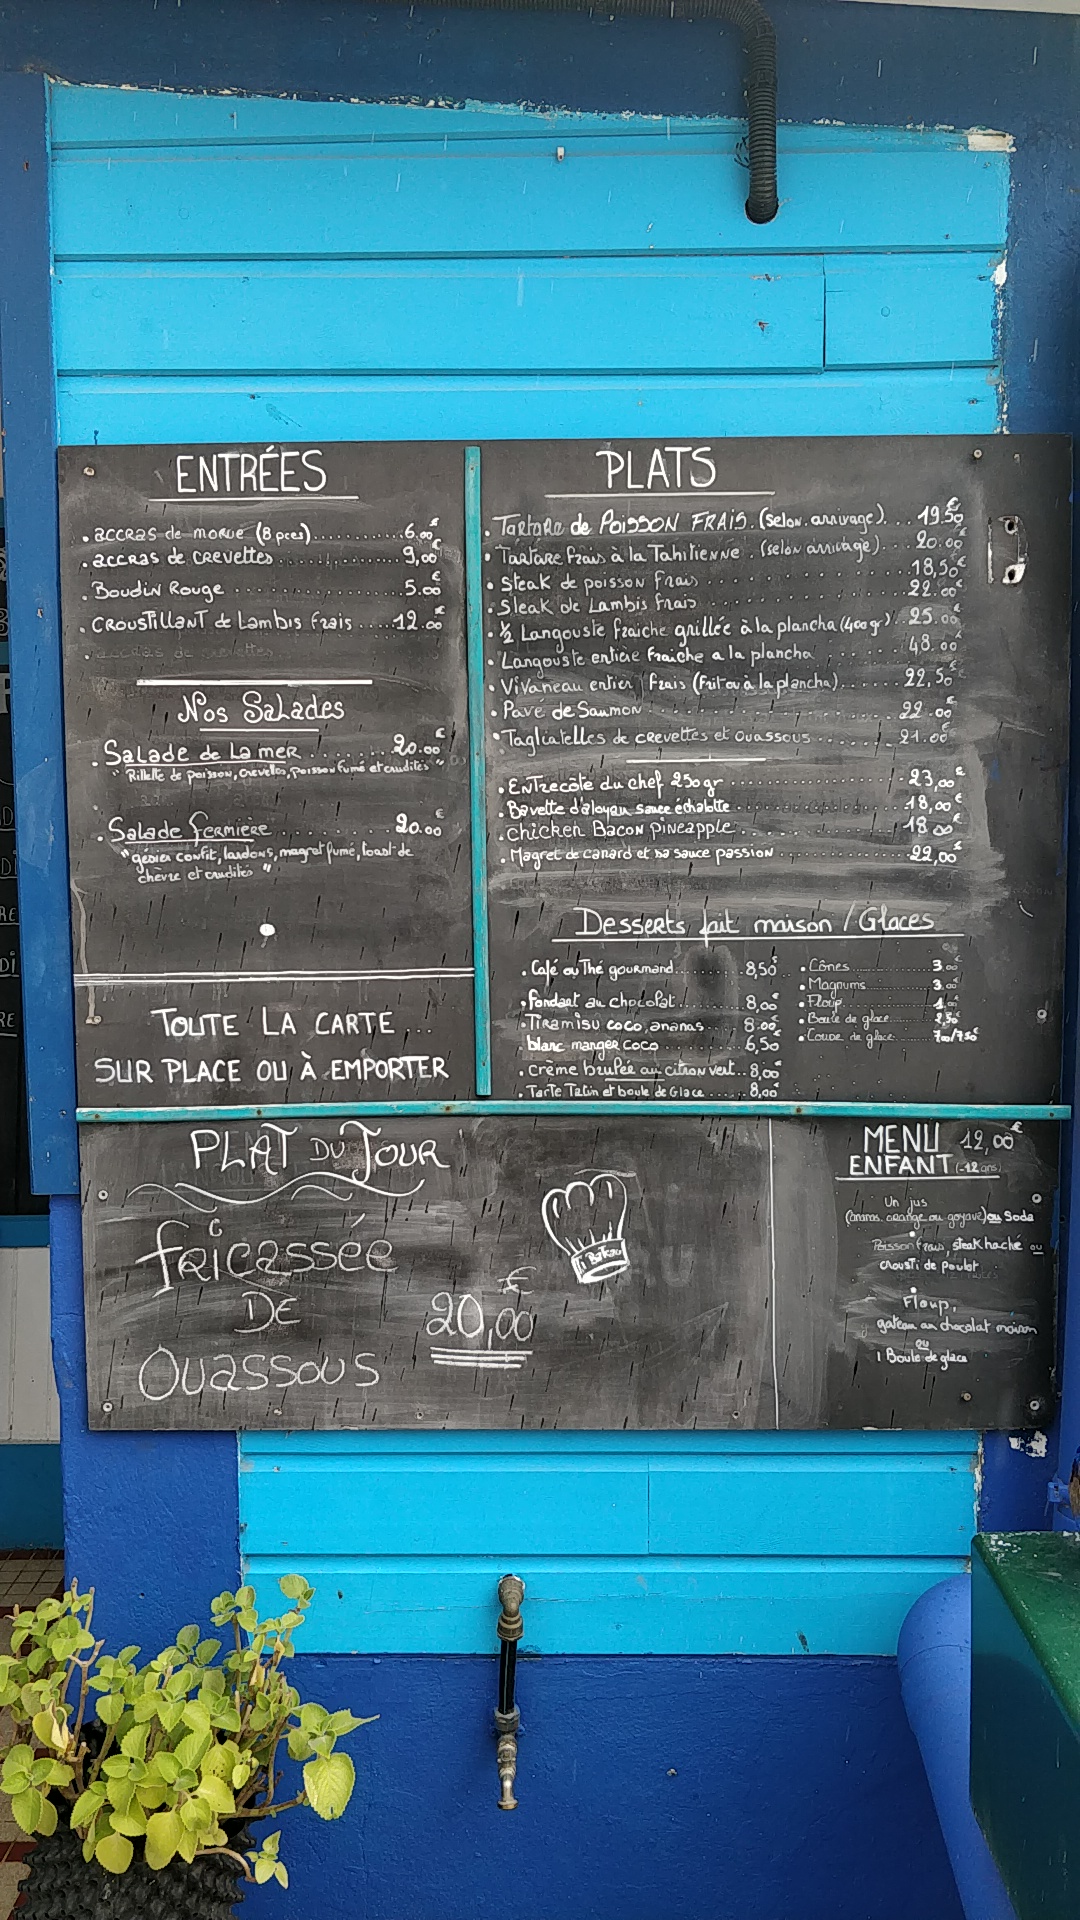 ENTRÉES
. accras de morue (8 pces)..............6.00€
. accras de crevettes ..................9,00€
. Boudin Rouge ..................5.00€
. CROUSTILLANT de Lambis frais .....12.00€
. accras de crevettes
Nos Salades
. Salade de La mer ........20.00€
" Rillette de poisson, crevettes, poisson fumé et crudités "
. Salade fermière ..........20.00€
" gésier confit, lardons, magret fumé, toast de
chèvre et crudités "
TOUTE LA CARTE ...
SUR PLACE OU À EMPORTER
PLATS
. Tartare de POISSON FRAIS. (selon arrivage)... 19.50€
. Tartare frais à la Tahitienne . (selon arrivage).... 20.00€
. Steak de poisson frais ..........18,50€
. Steak de Lambis frais ..........22.00€
. ½ Langouste fraiche grillée à la plancha (400gr). 25.00€
. Langouste entière fraîche a la plancha ......48.00€
. Vivaneau entier frais (frit ou à la plancha)......22,50€
. Pave de Saumon ..........22.00€
. Tagliatelles de crevettes et ouassous .......21.00€
. Entrecôte du chef 250gr ..........23,00€
. Bavette d'aloyau sauce échalotte ..........18,00€
. Chicken Bacon pineapple ..........18.00€
. Magret de canard et sa sauce passion ..........22,00€
Desserts fait maison / Glaces
. Café ou Thé gourmand..........8,50€
. fondant au chocolat..........8,00€
. Tiramisu coco, ananas .......8.00€
. blanc manger coco ..........6,50
. Crème brulée au citron vert..8,00€
. Tarte Tatin et boule de Glace ......8,00
. Cônes ..........3.00€
. Magnums ..........3.00€
. Floup ..........1.00€
. Boule de glace ..........2,50€
. Coupe de glace ..........7.00/7.50€
PLAT DU JOUR
fricassée
DE
Ouassous
20,00€
MENU 12,00€
ENFANT (-12 ans)
Un jus
(ananas, orange ou goyave) ou Soda
Poisson frais, steak haché ou
crousti de poulet
Floup,
gateau au chocolat maison
ou
1 Boule de glace